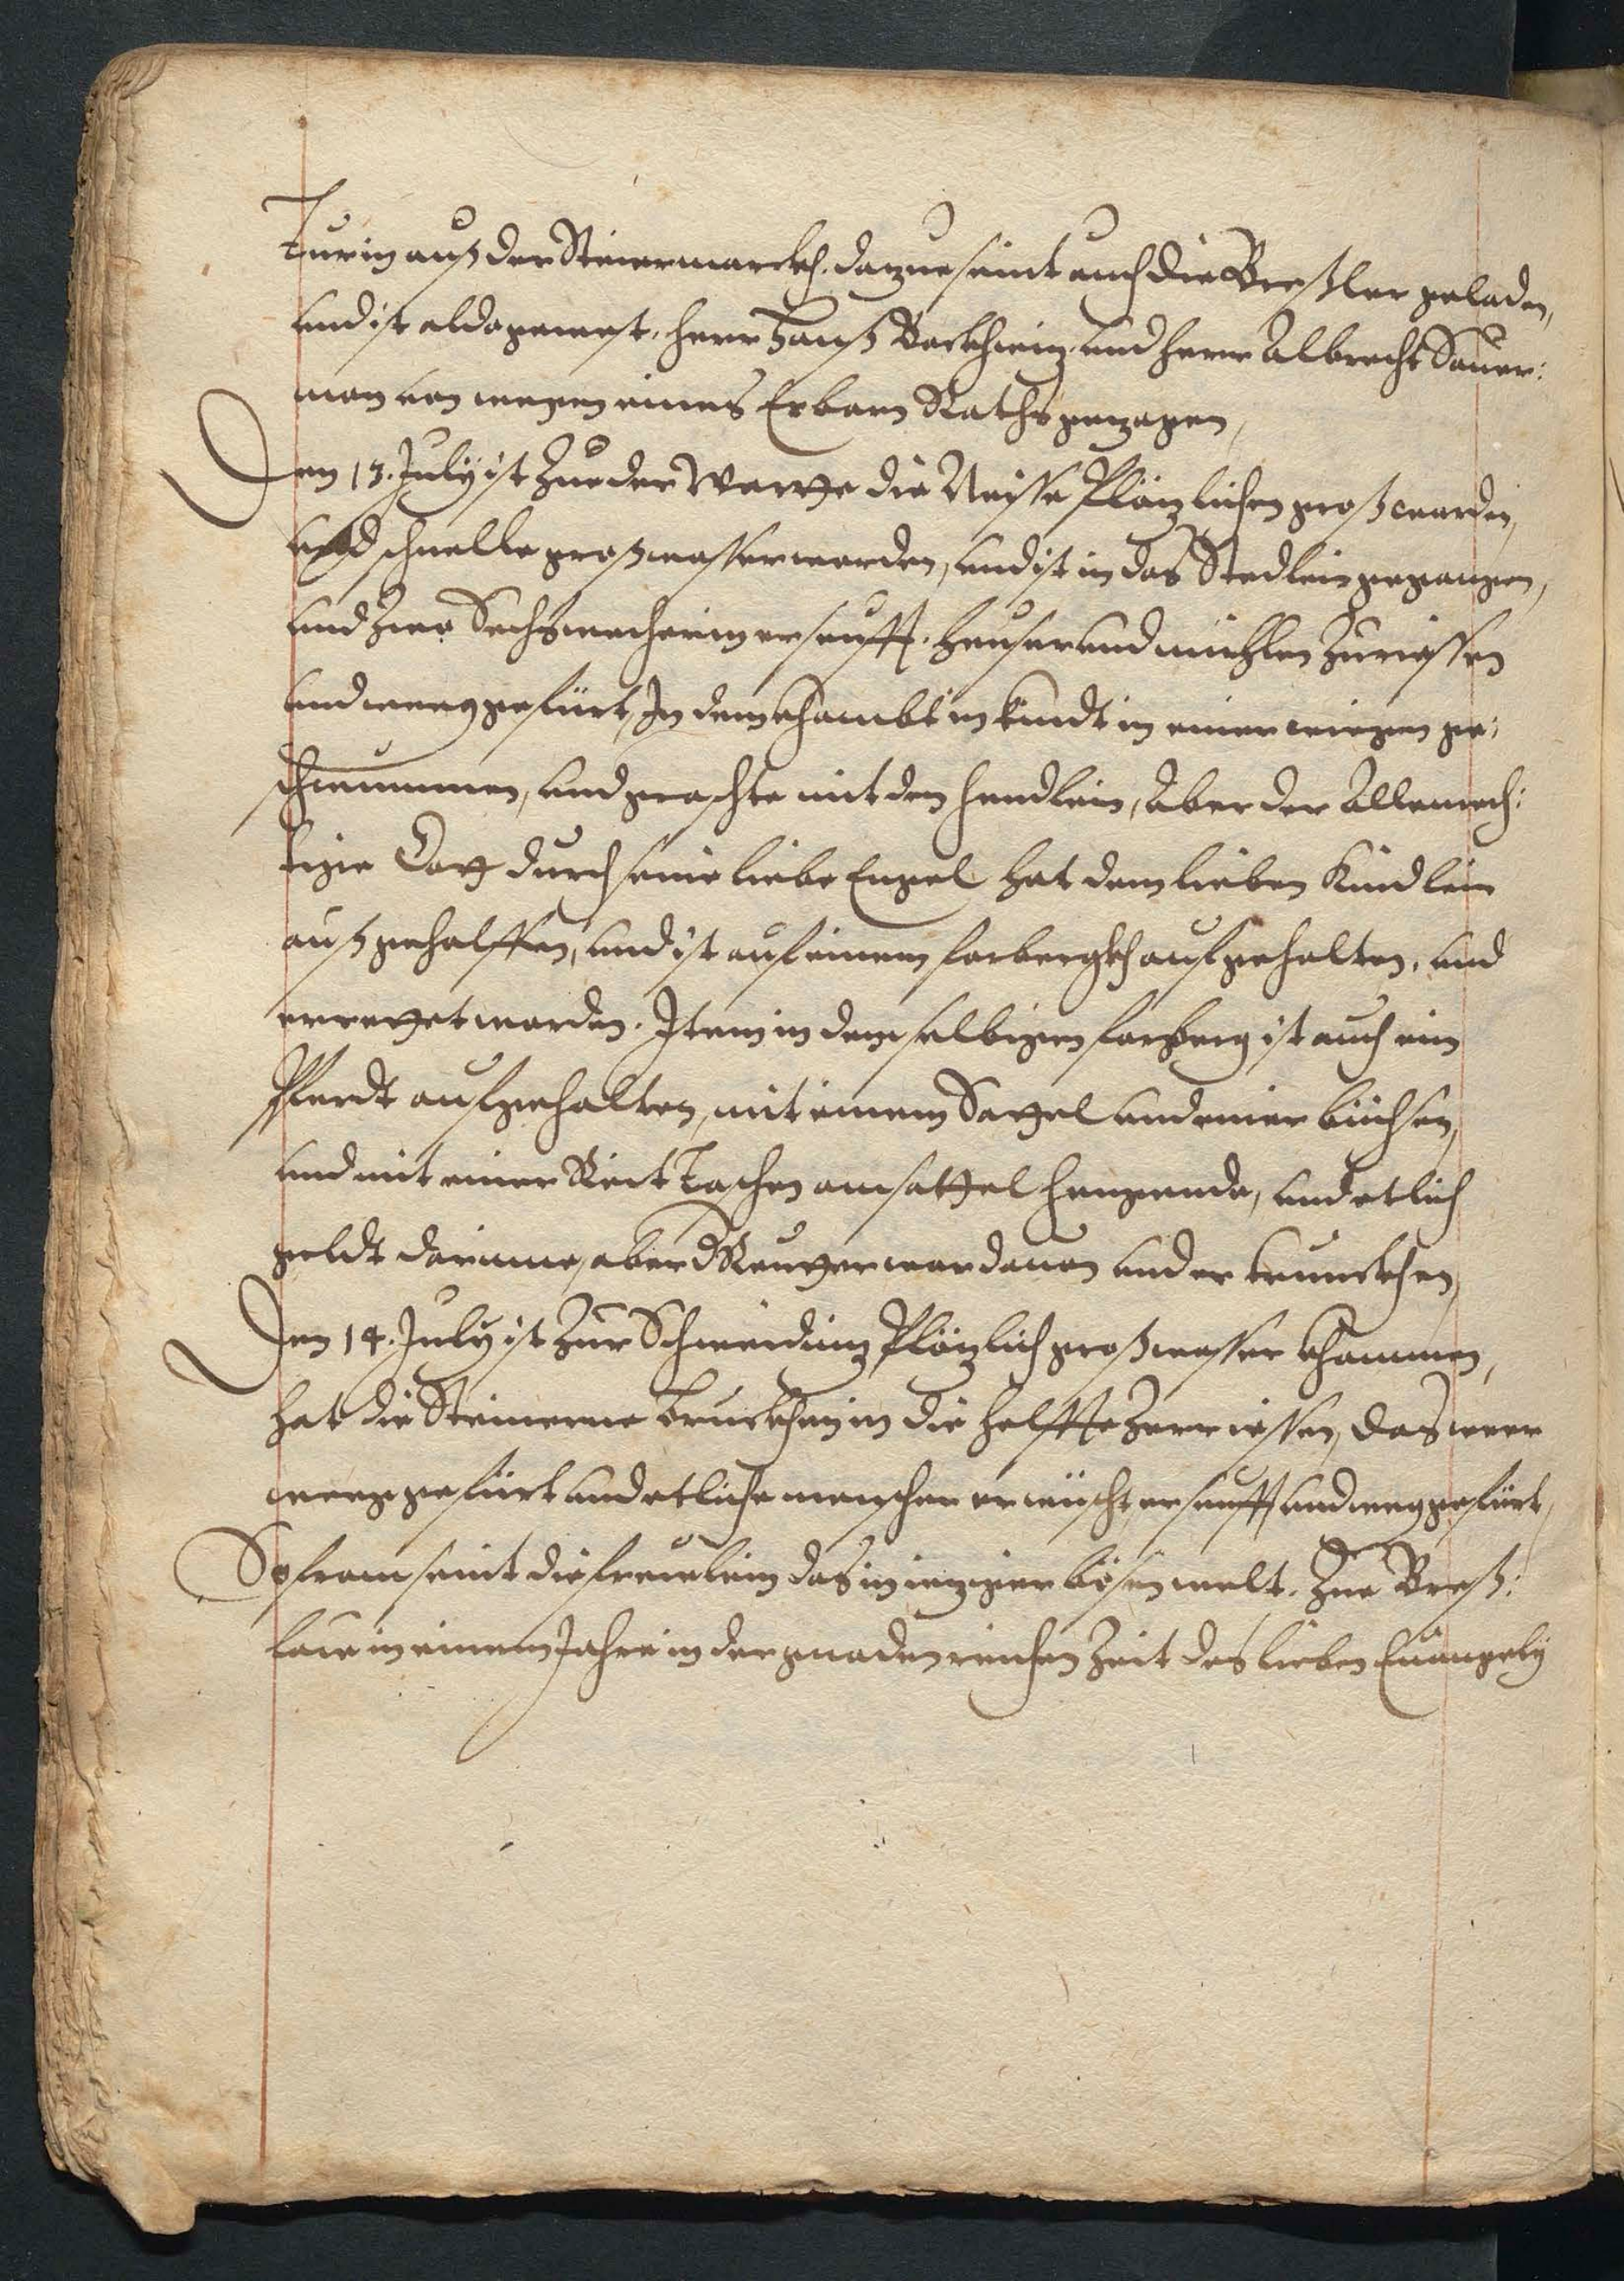 Turin auß der Steiermarckh. dazue seint auch die Breßler geladen,
und ist aldo gewest, Herr Hanß Bockhwiz und Herr Albrecht Sauer:
man von wegen eines Erbarn Raths gezogen,
Den 13. July ist zue der Wartte die Neisse Plözlichen groß worden,
und schnelle groß wasser worden, und ist in das Stedlein gegangen,
und zwo Sechswocherin erseufft. Heuser und mühlen zurissen
und weeg gefürt, In dem khombt ein kindt in einer wiegen ge:
schwummen, und graschte mit den hendlein, Aber der Allmech:
tige Gott durch seine liebe Engel hat dem lieben Kindlein
auß geholffen, und ist auf einem forbergkh aufgehalten, und
errettet worden. Item in dem selbigen forberg ist auch ein
Pferdt aufgehalten, mit einem Sattel und einer büchsen,
und mit einer Reit Taschen am sattel hengende, und etlich
geldt darinne, aber d Reutter war davon und ertrunckhen,
Den 14. July ist zur Schweidniz Plözlich groß wasser khommen,
hat die Steinerne bruckhen in die helffte zerrissen, das weer
weeg gefürt und etliche menschen erwüscht, erseufft und weg gefürt,
So from seint die freulein das in ieziger bösen welt. Zue Breß:
law in einem Jahre in der gnadenreichen Zeit des lieben Euangely